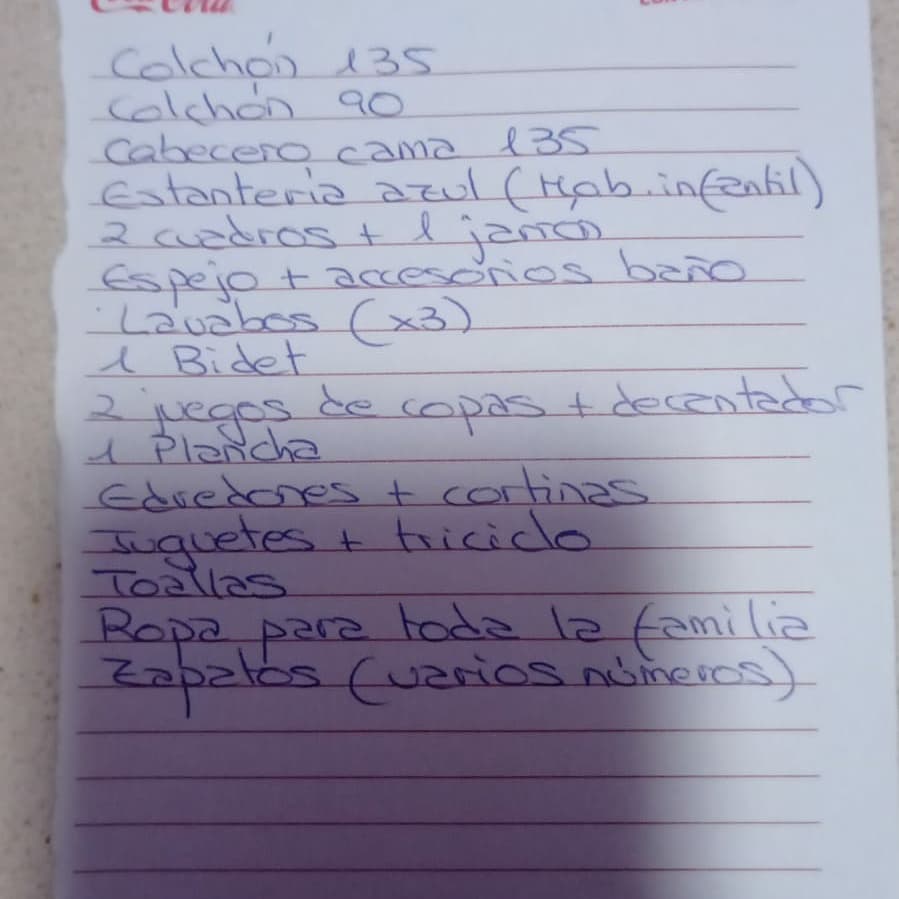 Coca-Cola
Colchón 135
Colchón 90
Cabecero cama 135
Estantería azul (Hab. infantil)
2 cuadros + 1 jarrón
Espejo + accesorios baño
Lavabos (x3)
1 Bidet
2 juegos de copas + decantador
1 Plancha
Edredones + cortinas
Juguetes + triciclo
Toallas
Ropa para toda la familia
Zapatos (varios números)